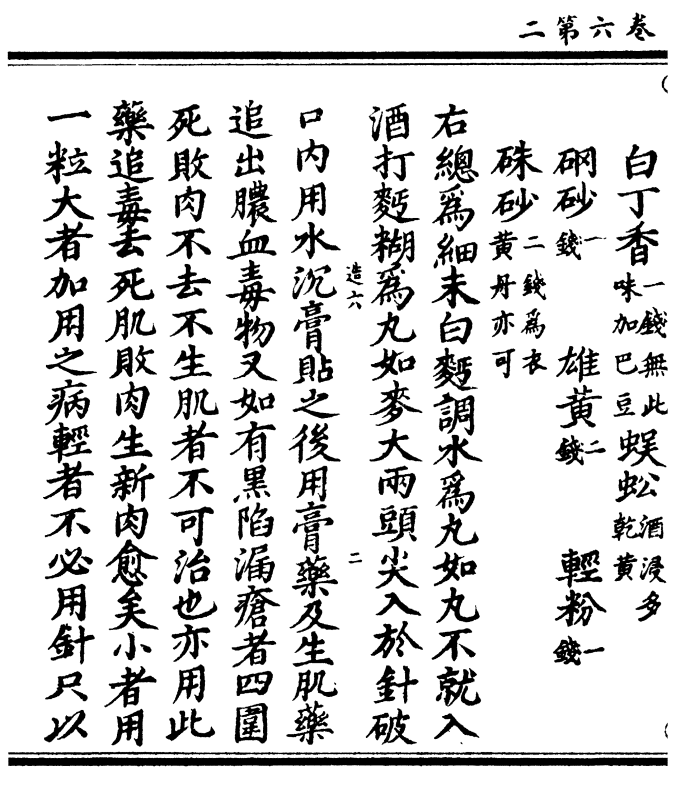 卷六第二
白丁香一錢無此味加巴豆蜈蚣酒浸多乾黄
硇砂一錢 雄黄二錢 輕粉一錢
硃砂二錢爲衣黄丹亦可
右總爲細末白麪調水爲丸如丸不就入
酒打麪糊爲丸如麥大兩頭尖入於針破
造六 二
口内用水沉膏貼之後用膏藥及生肌藥
追出膿血毒物又如有黑陷漏瘡者四圍
死敗肉不去不生肌者不可治也亦用此
藥追毒去死肌敗肉生新肉愈矣小者用
一粒大者加用之病輕者不必用針只以